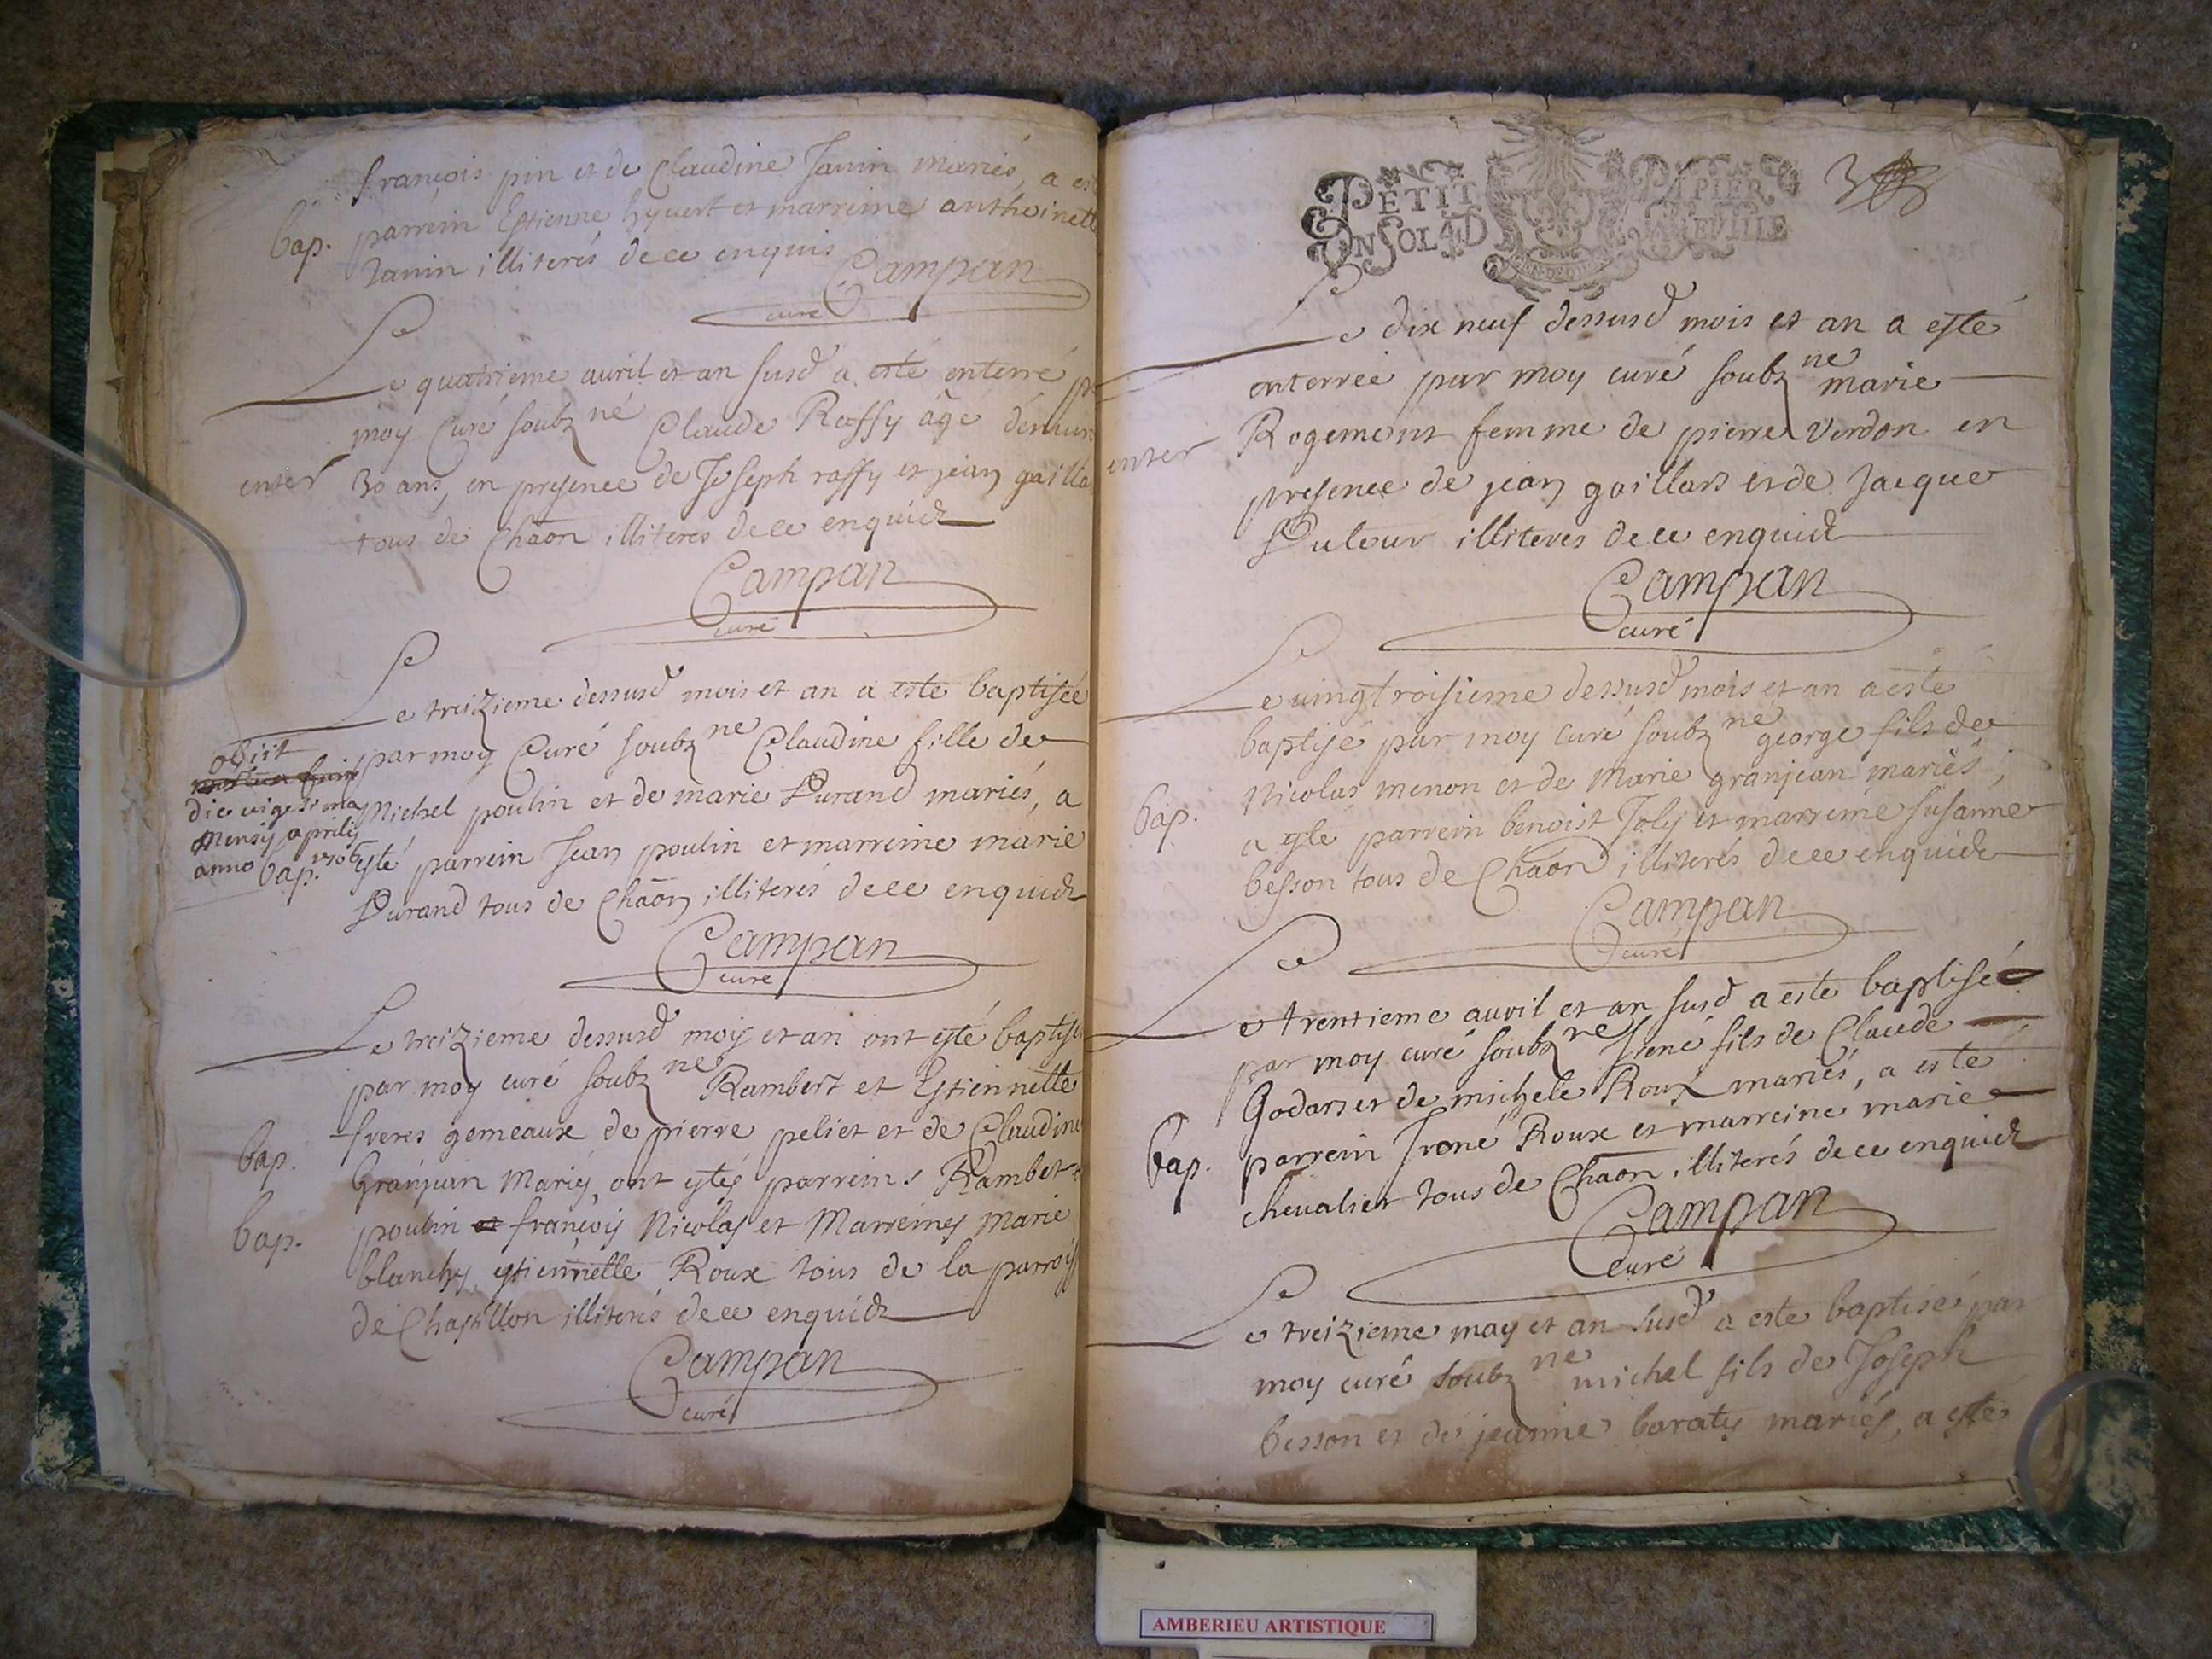 françois pin et de Claudine Janin mariés, a es
bap. parrein Estienne hyvert et marreine anthoinett
Janin illiterés de ce enquis
Campan
curé
Le quatrieme auril et an susd a esté enterré p
moy Curé soubz né Claude Raffy âge d'enuir
enter 30 ans, en presence de Joseph raffy et jean gailla
tous de Chaōn illiteres de ce enquidz
Campan
curé
Le treizieme dessusd mois et an a este baptisée
par moy Curé soubz ne Claudine fille de
obiit
die uigesima
mensis aprilis
anno 1706
Michel poulin et de marie Durand mariés, a
bap. esté parrein Jean poulin et marreine marie
Durand tous de Chaōn illiterés de ce enquidz
Campan
curé
Le treizieme dessusd mois et an ont esté baptis
par moy curé soubz né Rambert et Estiennette
freres gemeaux de pierre peliet et de Claudine
bap. Granjean Mariés, ont estés parreins Rambert
bap. poulin et françois Nicolas et Marreines Marie
blanchy, estiennette Roux tous de la parroiss
de Chastillon illiterés de ce enquidz
Campan
curé
PETIT PAPIER
UN SOL 4 D LA FEUILLE
Le dix neuf dessusd mois et an a esté
enterrée par moy curé soubz né marie
enter Rogemont femme de pierre Verdon en
presence de jean gaillard et de Jacque
Dulour illiteres de ce enquidz
Campan
curé
Le uingtroisieme dessusd mois et an a este
baptisé par moy curé soubz né george fils de
bap. Nicolas menon et de Marie granjean mariés,
a esté parrein benoist Joly et marreine susanne
besson tous de Chaōn illiterés de ce enquidz
Campan
curé
Le trentieme auril et an susd a este baptisé
par moy curé soubz né Irené fils de Claude
Godard et de michele Roux mariés, a esté
bap. parrein Irené Roux et marreine marie
chevalier tous de Chaōn illiterés de ce enquidz
Campan
Curé
Le treizieme may et an susd a este baptisé par
moy curé soubz né michel fils de Joseph
besson et de jeanne baraty mariés, a esté
AMBERIEU ARTISTIQUE